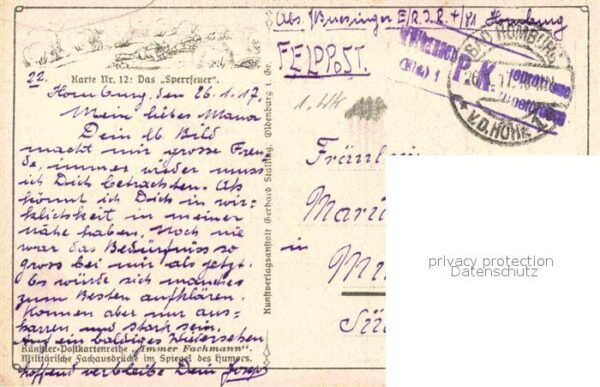 Abs. Buesinger E/R.I.R. 4/81 Homburg
FELDPOST.
BAD HOMBURG
V.D. HÖHE
P.K.
22.
Karte Nr. 12: Das „Sperrfeuer".
Homburg, den 26.1.17.
Mein liebes Mana
Dein lb. Bild
macht mir grosse Freu-
de, immer wieder muss
ich Dich betrachten. Ach
könnt ich Dich in wir-
klichkeit in meiner
nähe haben. Noch nie
war das Bedürfniss so
gross bei mir als jetzt.
Es würde sich manches
zum Besten aufklären.
Können aber nur aus-
harren und stark sein.
Auf ein baldiges Wiedersehen
Künstler-Postkartenreihe „Immer Fachmann".
Militärische Fachausdrücke im Spiegel des Humors.
hoffend verbleibe Dein Josef
Kunstverlagsanstalt Gerhard Stalling, Oldenburg i. Gr.
1. WK
Fräulein
in
privacy protection
Datenschutz